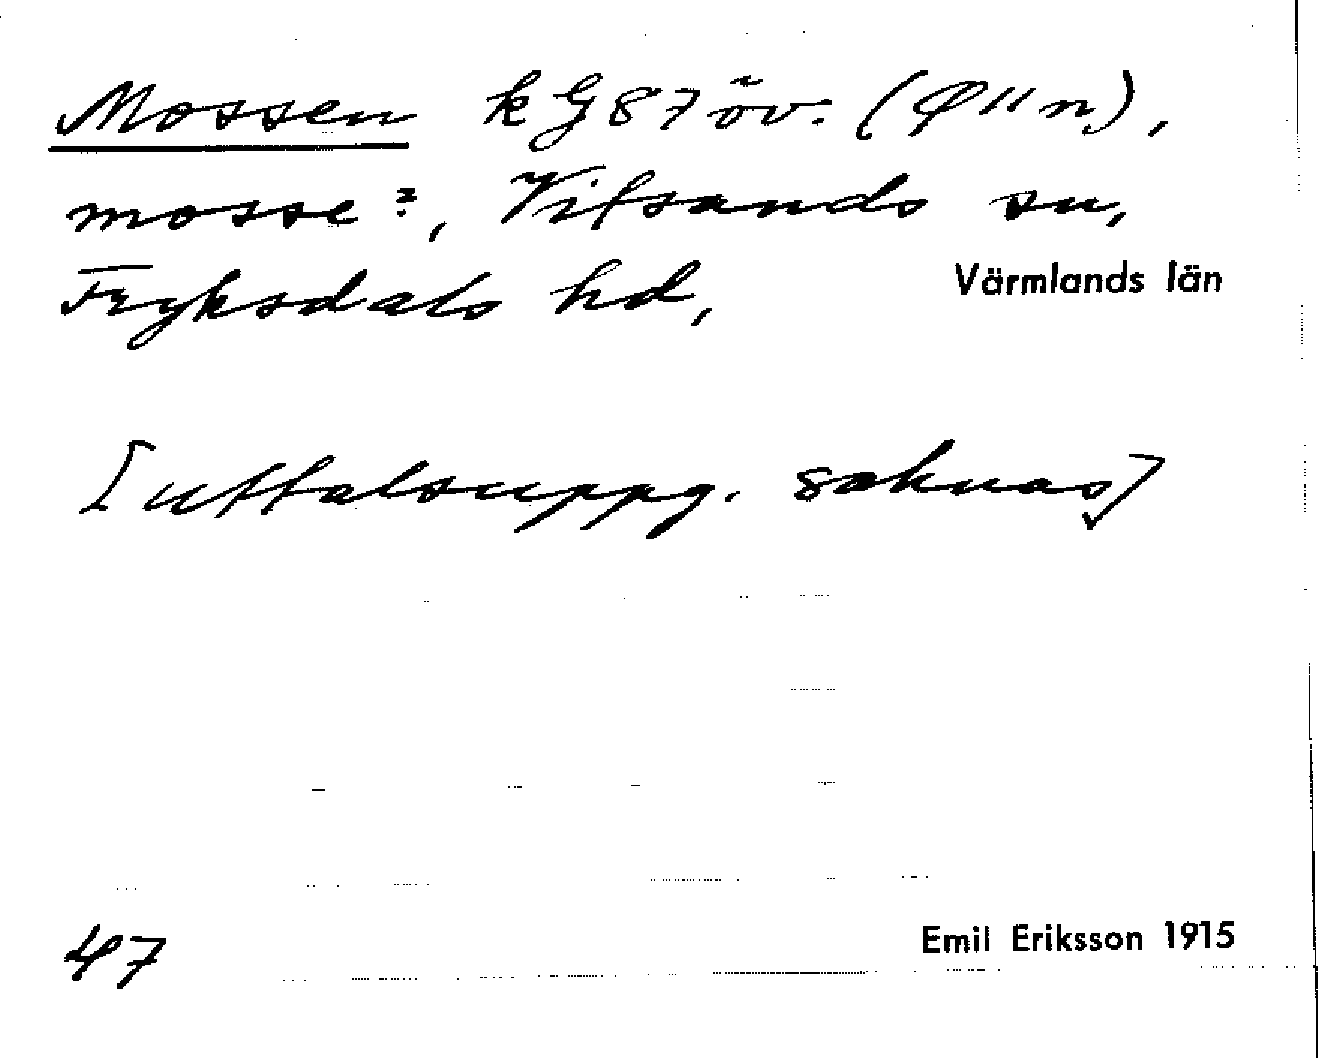 Mossen k G 87 öv. (Ø 11 n),
mosse?, Vitsands sn,
Fryksdals hd, Värmlands län
[uttalsuppg. saknas]
47 Emil Eriksson 1915